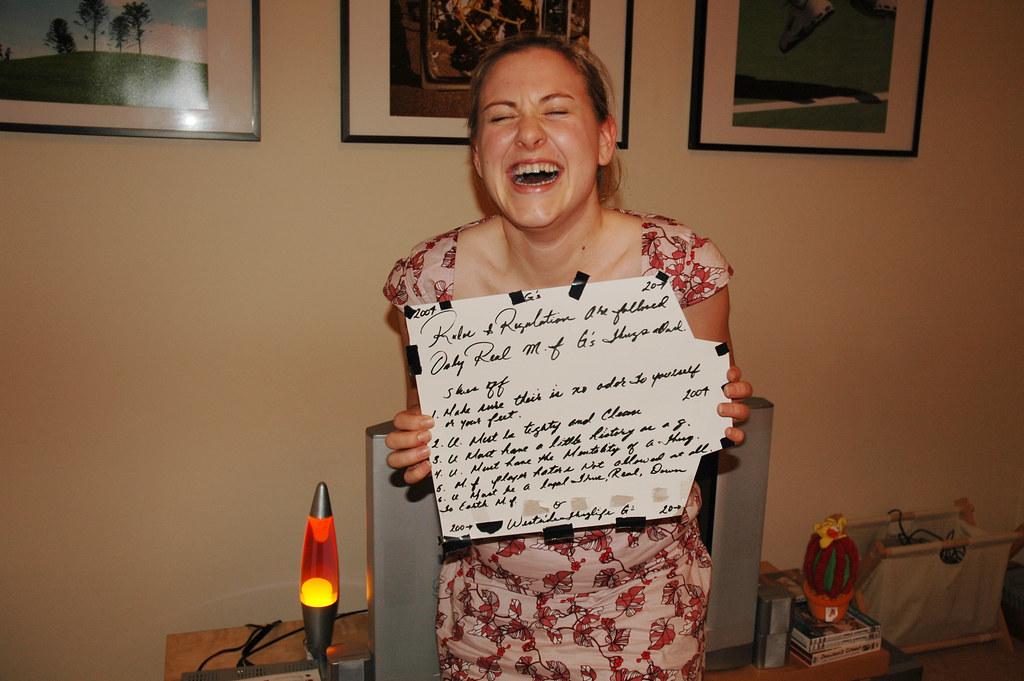 200+ G's 20+
Rules & Regulation Are followed
Only Real M.f G's Thugs allowed.
Shoes off
1. Make sure their is no odor to yourself
or your feet. 200+
2. U. Must be tighty and Clean
3. U Must have a little history as a g.
4. U. Must have the Mentality of a thug.
5. M.f player haters Not allowed at all.
6. U Must be A loyal True, Real, Down
To Earth M.f
200+ Westsidethuglife G's 20+